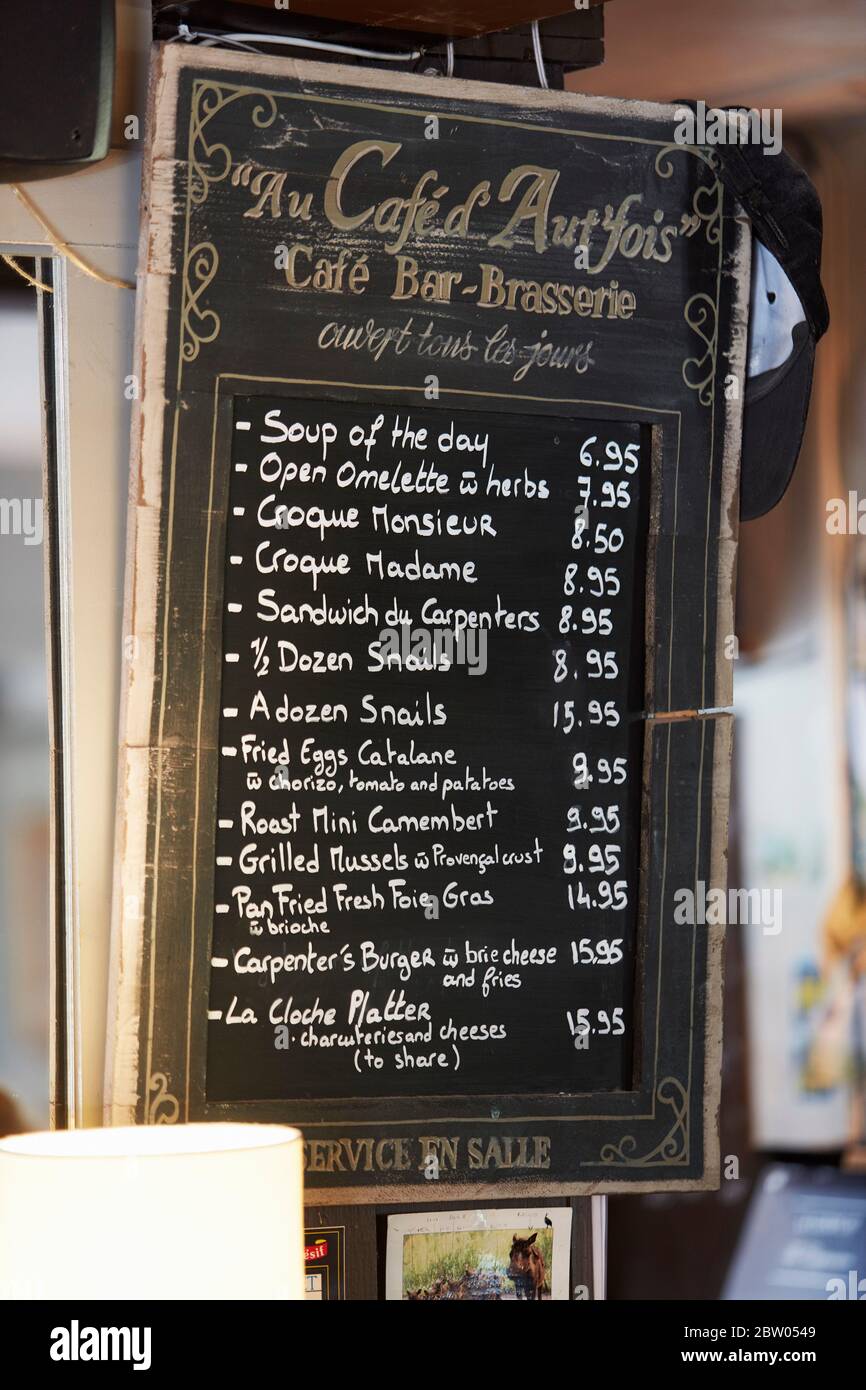 "Au Café d'Aut'fois"
Café Bar-Brasserie
ouvert tous les jours
- Soup of the day 6.95
- Open Omelette w̄ herbs 7.95
- Croque Monsieur 8.50
- Croque Madame 8.95
- Sandwich du Carpenters 8.95
- 1/2 Dozen Snails 8.95
- A dozen Snails 15.95
- Fried Eggs Catalane 9.95
w̄ chorizo, tomato and patatoes
- Roast Mini Camembert 9.95
- Grilled Mussels w̄ Provençal crust 9.95
- Pan Fried Fresh Foie Gras 14.95
w̄ brioche
- Carpenter's Burger w̄ brie cheese 15.95
and fries
- La Cloche Platter 15.95
. charcuteries and cheeses
(to share)
SERVICE EN SALLE
alamy
Image ID: 2BW0549
www.alamy.com